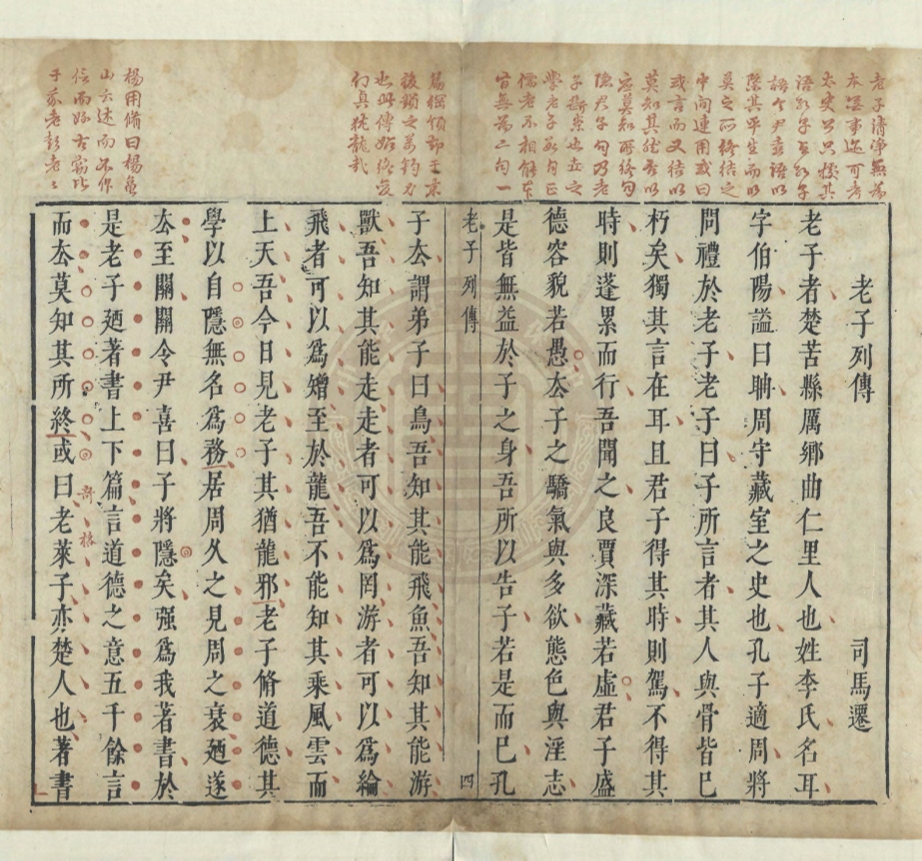 老子列傳
司馬遷
老子者楚苦縣厲鄉曲仁里人也姓李氏名耳
字伯陽謚曰聃周守藏室之史也孔子適周將
問禮於老子老子曰子所言者其人與骨皆已
朽矣獨其言在耳且君子得其時則駕不得其
時則蓬累而行吾聞之良賈深藏若虛君子盛
德容貌若愚厺子之驕氣與多欲態色與淫志
是皆無益於子之身吾所以告子若是而已孔
老子列傳
四
子厺謂弟子曰鳥吾知其能飛魚吾知其能游
獸吾知其能走走者可以爲罔游者可以爲綸
飛者可以爲矰至於龍吾不能知其乘風雲而
上天吾今日見老子其猶龍邪老子脩道德其
學以自隱無名爲務居周久之見周之衰廼遂
厺至關關令尹喜曰子將隱矣强爲我著書於
是老子廼著書上下篇言道德之意五千餘言
而厺莫知其所終或曰老萊子亦楚人也著書
老子清淨無爲
本無事迹可考
太史公只據其
語孔子與孔子
語令尹喜語以
槩其平生而以
莫之所終結之
中間連用或曰
或言而又結以
莫知其然否以
應莫知所終句
隱君子句乃老
子斷案也豈之
學老子數句正
儒老不相能
自無爲二句一
楊用脩曰楊龜
山云述而不作
信而好古竊比
于我老彭老